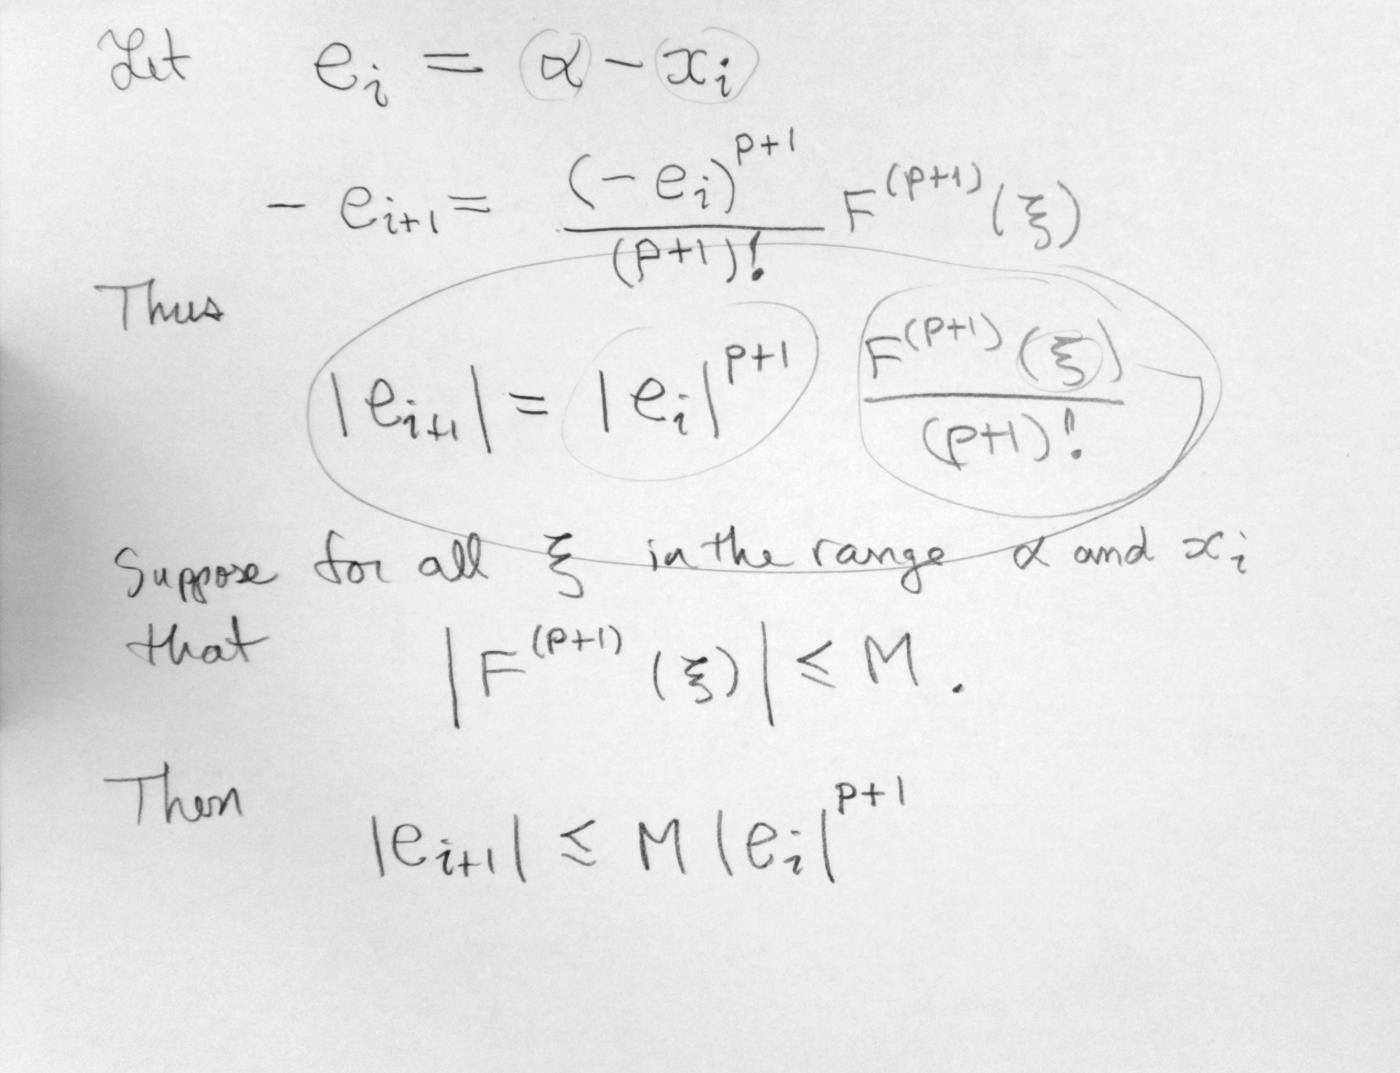 Let e_i = α - x_i
- e_{i+1} = \frac{(-e_i)^{p+1}}{(p+1)!} F^{(p+1)}(ξ)
Thus
|e_{i+1}| = |e_i|^{p+1} \frac{F^{(p+1)}(ξ)}{(p+1)!}
Suppose for all ξ in the range α and x_i
that |F^{(p+1)}(ξ)| ≤ M.
Then
|e_{i+1}| ≤ M |e_i|^{p+1}